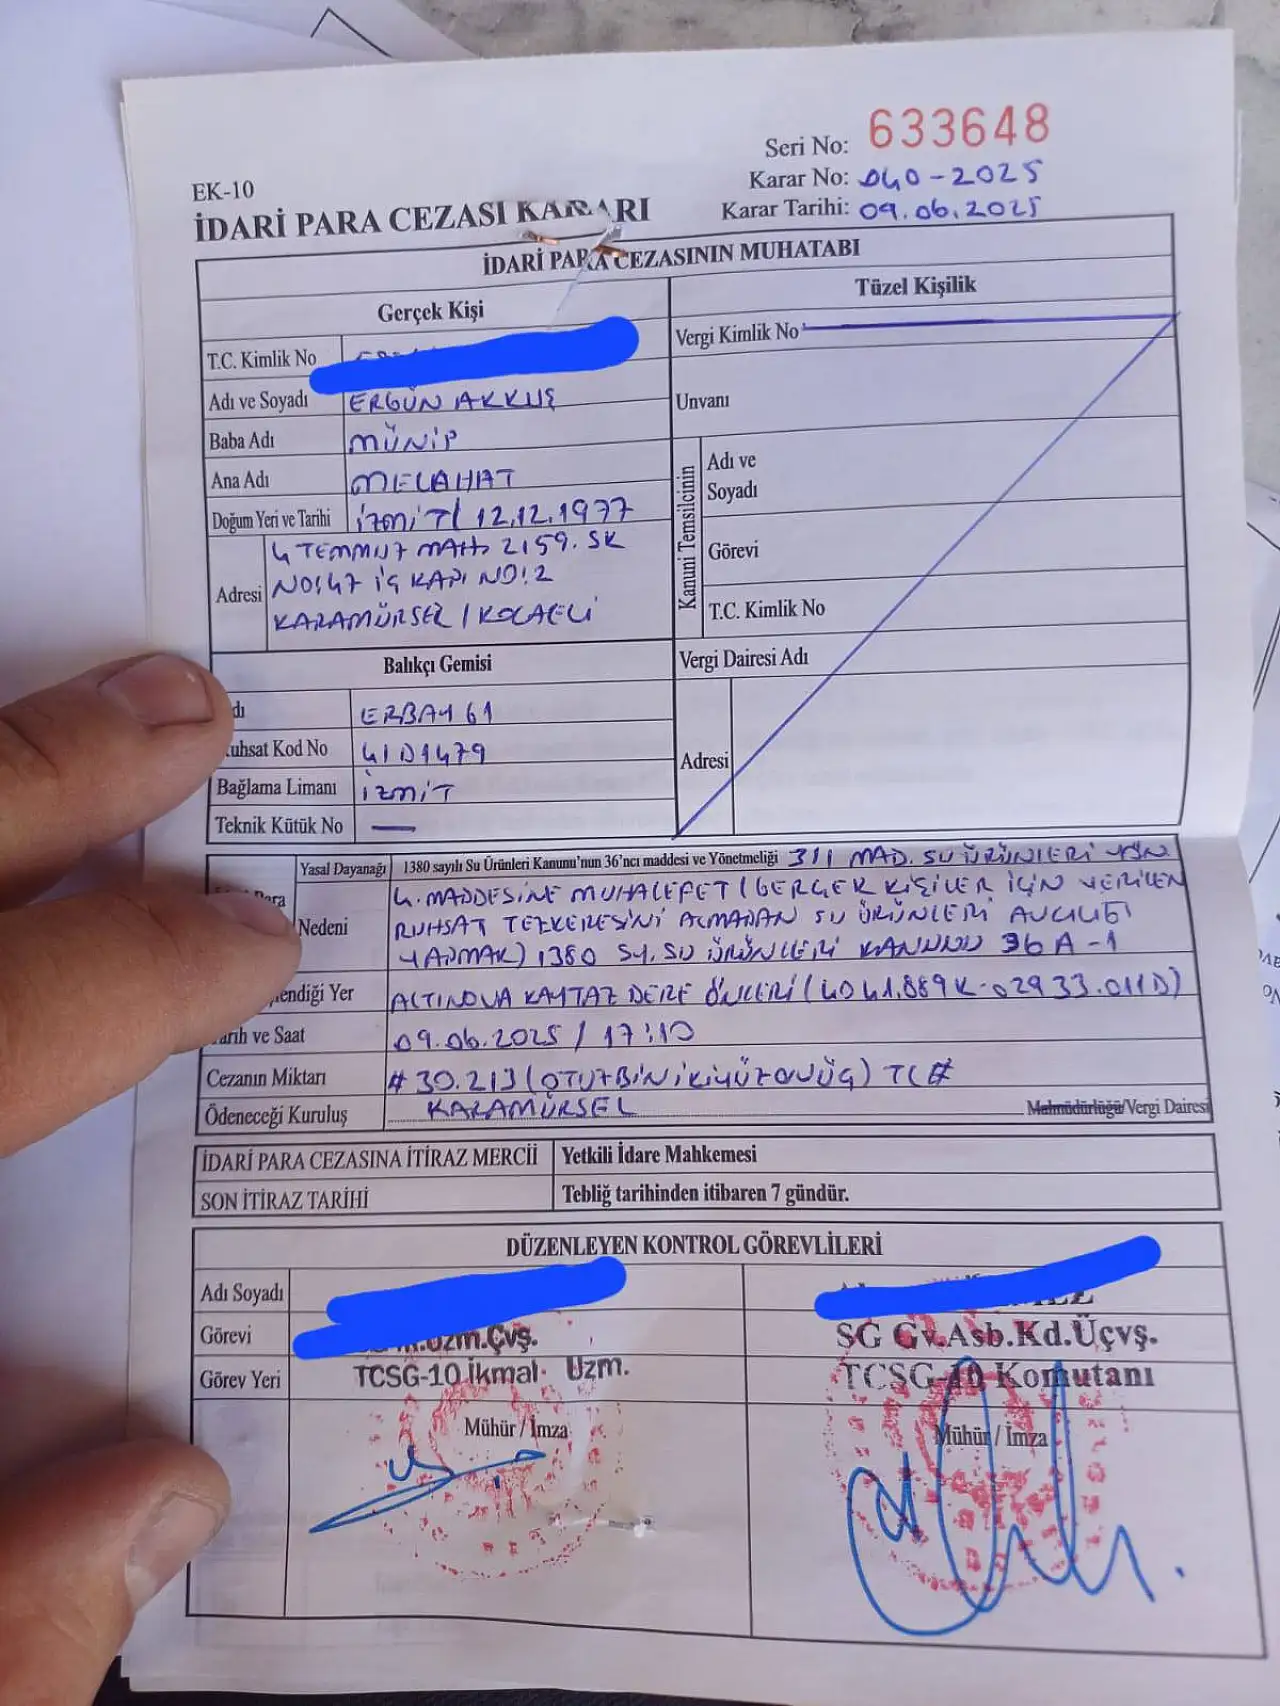 Seri No: 633648
EK-10
Karar No: 040-2025
İDARİ PARA CEZASI KARARI
Karar Tarihi: 09.06.2025
İDARİ PARA CEZASININ MUHATABI
Gerçek Kişi
Tüzel Kişilik
T.C. Kimlik No
Vergi Kimlik No
Adı ve Soyadı ERGÜN AKKUŞ
Unvanı
Baba Adı MÜNİP
Ana Adı MELAHAT
Kanuni Temsilcinin
Adı ve Soyadı
Doğum Yeri ve Tarihi İZMİT/ 12.12.1977
Görevi
Adresi 4 TEMMUZ MAH. 2159. SK
NO:47 İÇ KAPI NO:2
KARAMÜRSEL / KOCAELİ
T.C. Kimlik No
Balıkçı Gemisi
Vergi Dairesi Adı
dı ERBAY 61
uhsat Kod No 41D1479
Adresi
Bağlama Limanı İZMİT
Teknik Kütük No —
Yasal Dayanağı 1380 sayılı Su Ürünleri Kanunu'nun 36'ncı maddesi ve Yönetmeliği 3/1 MAD. SU ÜRÜNLERİ YÖN
ara
Nedeni 4. MADDESİNE MUHALEFET (GERÇEK KİŞİLER İÇİN VERİLEN
RUHSAT TEZKERESİNİ ALMADAN SU ÜRÜNLERİ AVCILIĞI
YAPMAK) 1380 SY. SU ÜRÜNLERİ KANUNU 36 A-1
lendiği Yer ALTINOVA KAYTAZ DERE ÖNLERİ (40 41.889K-029 33.011D)
arih ve Saat 09.06.2025 / 17:10
Cezanın Miktarı # 30.213 (OTUZBİNİKİYÜZONÜÇ) TL #
Ödeneceği Kuruluş KARAMÜRSEL Malmüdürlüğü/Vergi Dairesi
İDARİ PARA CEZASINA İTİRAZ MERCİİ Yetkili İdare Mahkemesi
SON İTİRAZ TARİHİ Tebliğ tarihinden itibaren 7 gündür.
DÜZENLEYEN KONTROL GÖREVLİLERİ
Adı Soyadı
Görevi
Uzm.Çvş.
SG Gv.Asb.Kd.Üçvş.
Görev Yeri TCSG-10 İkmal Uzm.
TCSG-10 Komutanı
Mühür / İmza
Mühür / İmza